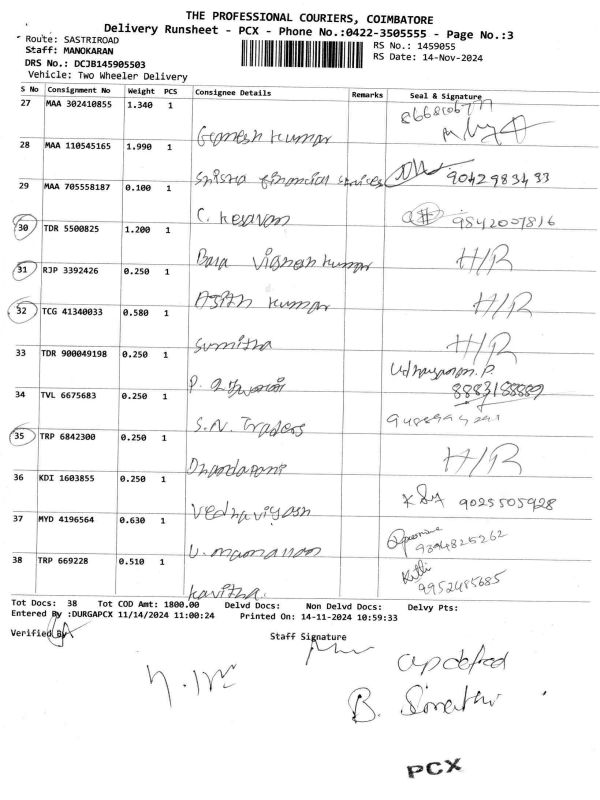 THE PROFESSIONAL COURIERS, COIMBATORE
Delivery Runsheet - PCX - Phone No.:0422-3505555 - Page No.:3
Route: SASTRIROAD
RS No.: 1459055
Staff: MANOKARAN
RS Date: 14-Nov-2024
DRS No.: DCJB145905503
Vehicle: Two Wheeler Delivery
S No Consignment No Weight PCS Consignee Details Remarks Seal & Signature
27 MAA 302410855 1.340 1 Ganesh kumar
28 MAA 110545165 1.990 1 financial services 9042983433
29 MAA 705558187 0.100 1 C. kesavan 9842007816
30 TDR 5500825 1.200 1 Bala Vignesh kumar H/R
31 RJP 3392426 0.250 1 Ajith kumar H/R
32 TCG 41340033 0.580 1 sumitha H/R
33 TDR 900049198 0.250 1 P. 8883188889
34 TVL 6675683 0.250 1 S.N. Traders
35 TRP 6842300 0.250 1 Dhandapani H/R
36 KDI 1603855 0.250 1 Vedhaviyash 9025505928
37 MYD 4196564 0.630 1 9894825262
38 TRP 669228 0.510 1 kavitha. 9952485685
Tot Docs: 38 Tot COD Amt: 1800.00 Delvd Docs: Non Delvd Docs: Delvy Pts:
Entered By :DURGAPCX 11/14/2024 11:00:24 Printed On: 14-11-2024 10:59:33
Verified By
Staff Signature
updated
B.
PCX